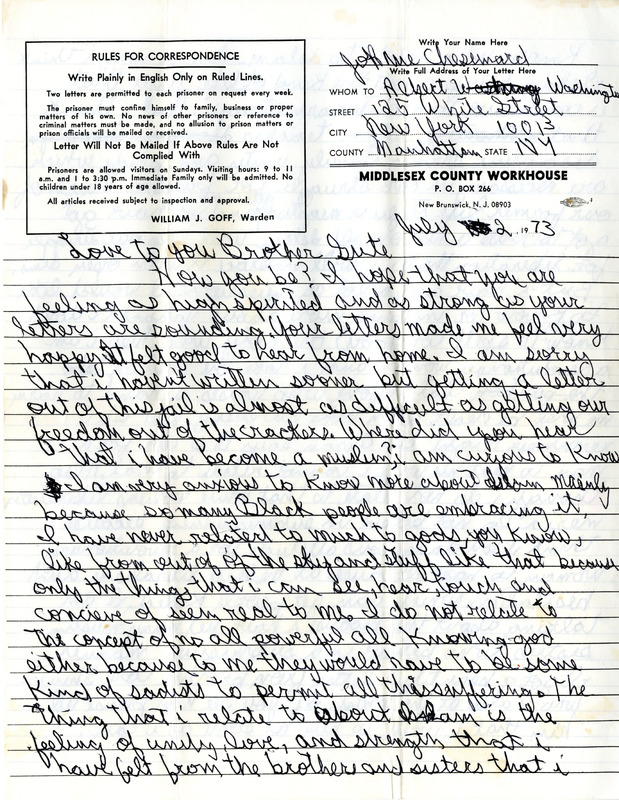 RULES FOR CORRESPONDENCE
Write Plainly in English Only on Ruled Lines.
Two letters are permitted to each prisoner on request every week.
The prisoner must confine himself to family, business or proper
matters of his own. No news of other prisoners or reference to
criminal matters must be made, and no allusion to prison matters or
prison officials will be mailed or received.
Letter Will Not Be Mailed If Above Rules Are Not
Complied With
Prisoners are allowed visitors on Sundays. Visiting hours: 9 to 11
a.m. and 1 to 3:30 p.m. Immediate Family only will be admitted. No
children under 18 years of age allowed.
All articles received subject to inspection and approval.
WILLIAM J. GOFF, Warden
Write Your Name Here
JoAnne Chesimard
Write Full Address of Your Letter Here
WHOM TO Albert Washington
STREET 125 White Street
CITY New York 10013
COUNTY Manhattan STATE NY
MIDDLESEX COUNTY WORKHOUSE
P. O. BOX 266
New Brunswick, N. J. 08903
July 2, 1973
Love to you Brother Sute
How you be? I hope that you are
feeling as high spirited and as strong as your
letters are sounding. Your letters made me feel very
happy. It felt good to hear from home. I am sorry
that i havent written sooner but getting a letter
out of this jail is almost as difficult as getting our
freedom out of the crackers. Where did you hear
that i have become a muslim? i am curious to know
I am very anxious to know more about Islam mainly
because so many Black people are embracing it,
I have never related to much to gods, you know,
like from out of of the sky and stuff like that because
only the things that i can see, hear, touch and
concieve of seem real to me. I do not relate to
the concept of no all powerful all knowing god
either because to me they would have to be some
kind of sadists to permit all this suffering. The
thing that i relate to about Islam is the
feeling of unity, love, and strength that i
have felt from the brothers and sisters that i